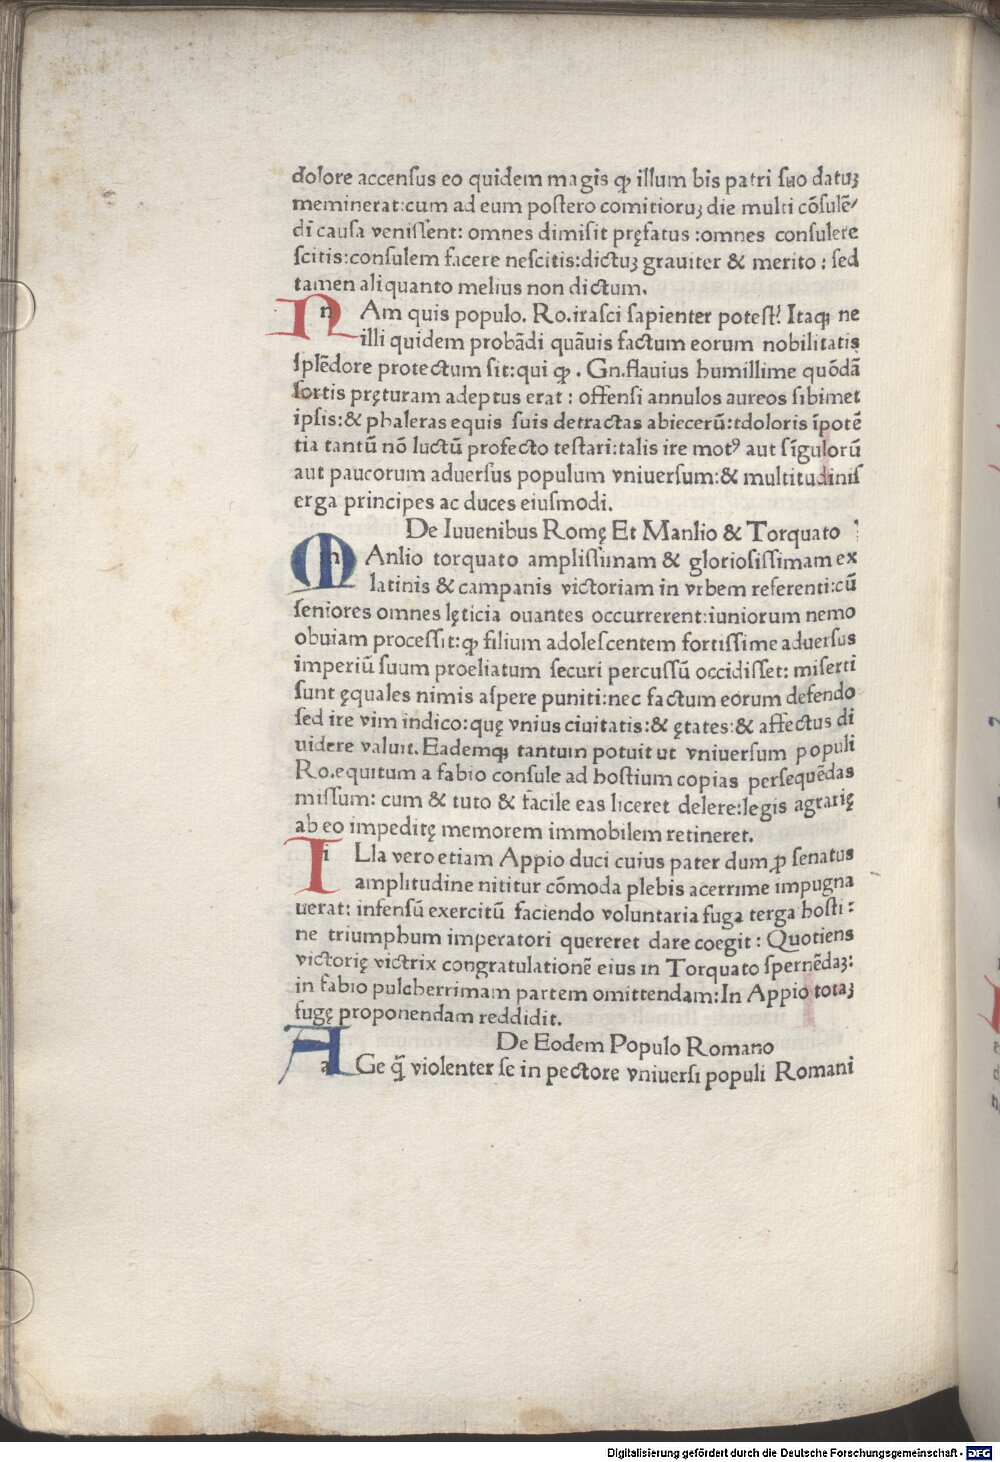 dolore accensus eo quidem magis ꝙ illum bis patri suo datuꝫ
meminerat:cum ad eum postero comitioruꝫ die multi cõsulẽ/
dĩ causa venissent: omnes dimisit pręfatus :omnes consulere
scitis:consulem facere nescitis:dictuꝫ grauiter & merito : sed
tamen aliquanto melius non dictum.
n Am quis populo. Ro.irasci sapienter potest? Itaqꝫ ne
illi quidem probãdi quãuis factum eorum nobilitatis
splẽdore protectum sit:qui ꝙ . Gn.flauius humillime quõdã
sortis pręturam adeptus erat : offensi annulos aureos sibimet
ipsis:& phaleras equis suis detractas abiecerũ:tdoloris ĩpotẽ
tia tantũ nõ luctũ profecto testari:talis ire motꝰ aut sĩgulorũ
aut paucorum aduersus populum vniuersum:& multitudinis
erga principes ac duces eiusmodi.
De Iuuenibus Romę Et Manlio & Torquato
m Anlio torquato amplissimam & gloriosissimam ex
latinis & campanis victoriam in vrbem referenti:cũ
seniores omnes lęticia ouantes occurrerent:iuniorum nemo
obuiam processit:ꝙ filium adolescentem fortissime aduersus
imperiũ suum proeliatum securi percussũ occidisset: miserti
sunt ęquales nimis aspere puniti:nec factum eorum defendo
sed ire vim indico:quę vnius ciuitatis:& ętates:& affectus di
uidere valuit. Eademqꝫ tantum potuit ut vniuersum populi
Ro.equitum a fabio consule ad hostium copias persequẽdas
missum: cum & tuto & facile eas liceret delere:legis agrarię
ab eo impeditę memorem immobilem retineret.
i Lla vero etiam Appio duci cuius pater dum ꝓ senatus
amplitudine nititur cõmoda plebis acerrime impugna
uerat: infensũ exercitũ faciendo voluntaria fuga terga hosti :
ne triumphum imperatori quereret dare coegit : Quotiens
victorię victrix congratulationẽ eius in Torquato spernẽdaꝫ:
in fabio pulcherrimam partem omittendam:In Appio totaꝫ
fugę proponendam reddidit.
De Eodem Populo Romano
a Ge q̃ violenter se in pectore vniuersi populi Romani
Digitalisierung gefördert durch die Deutsche Forschungsgemeinschaft - DFG